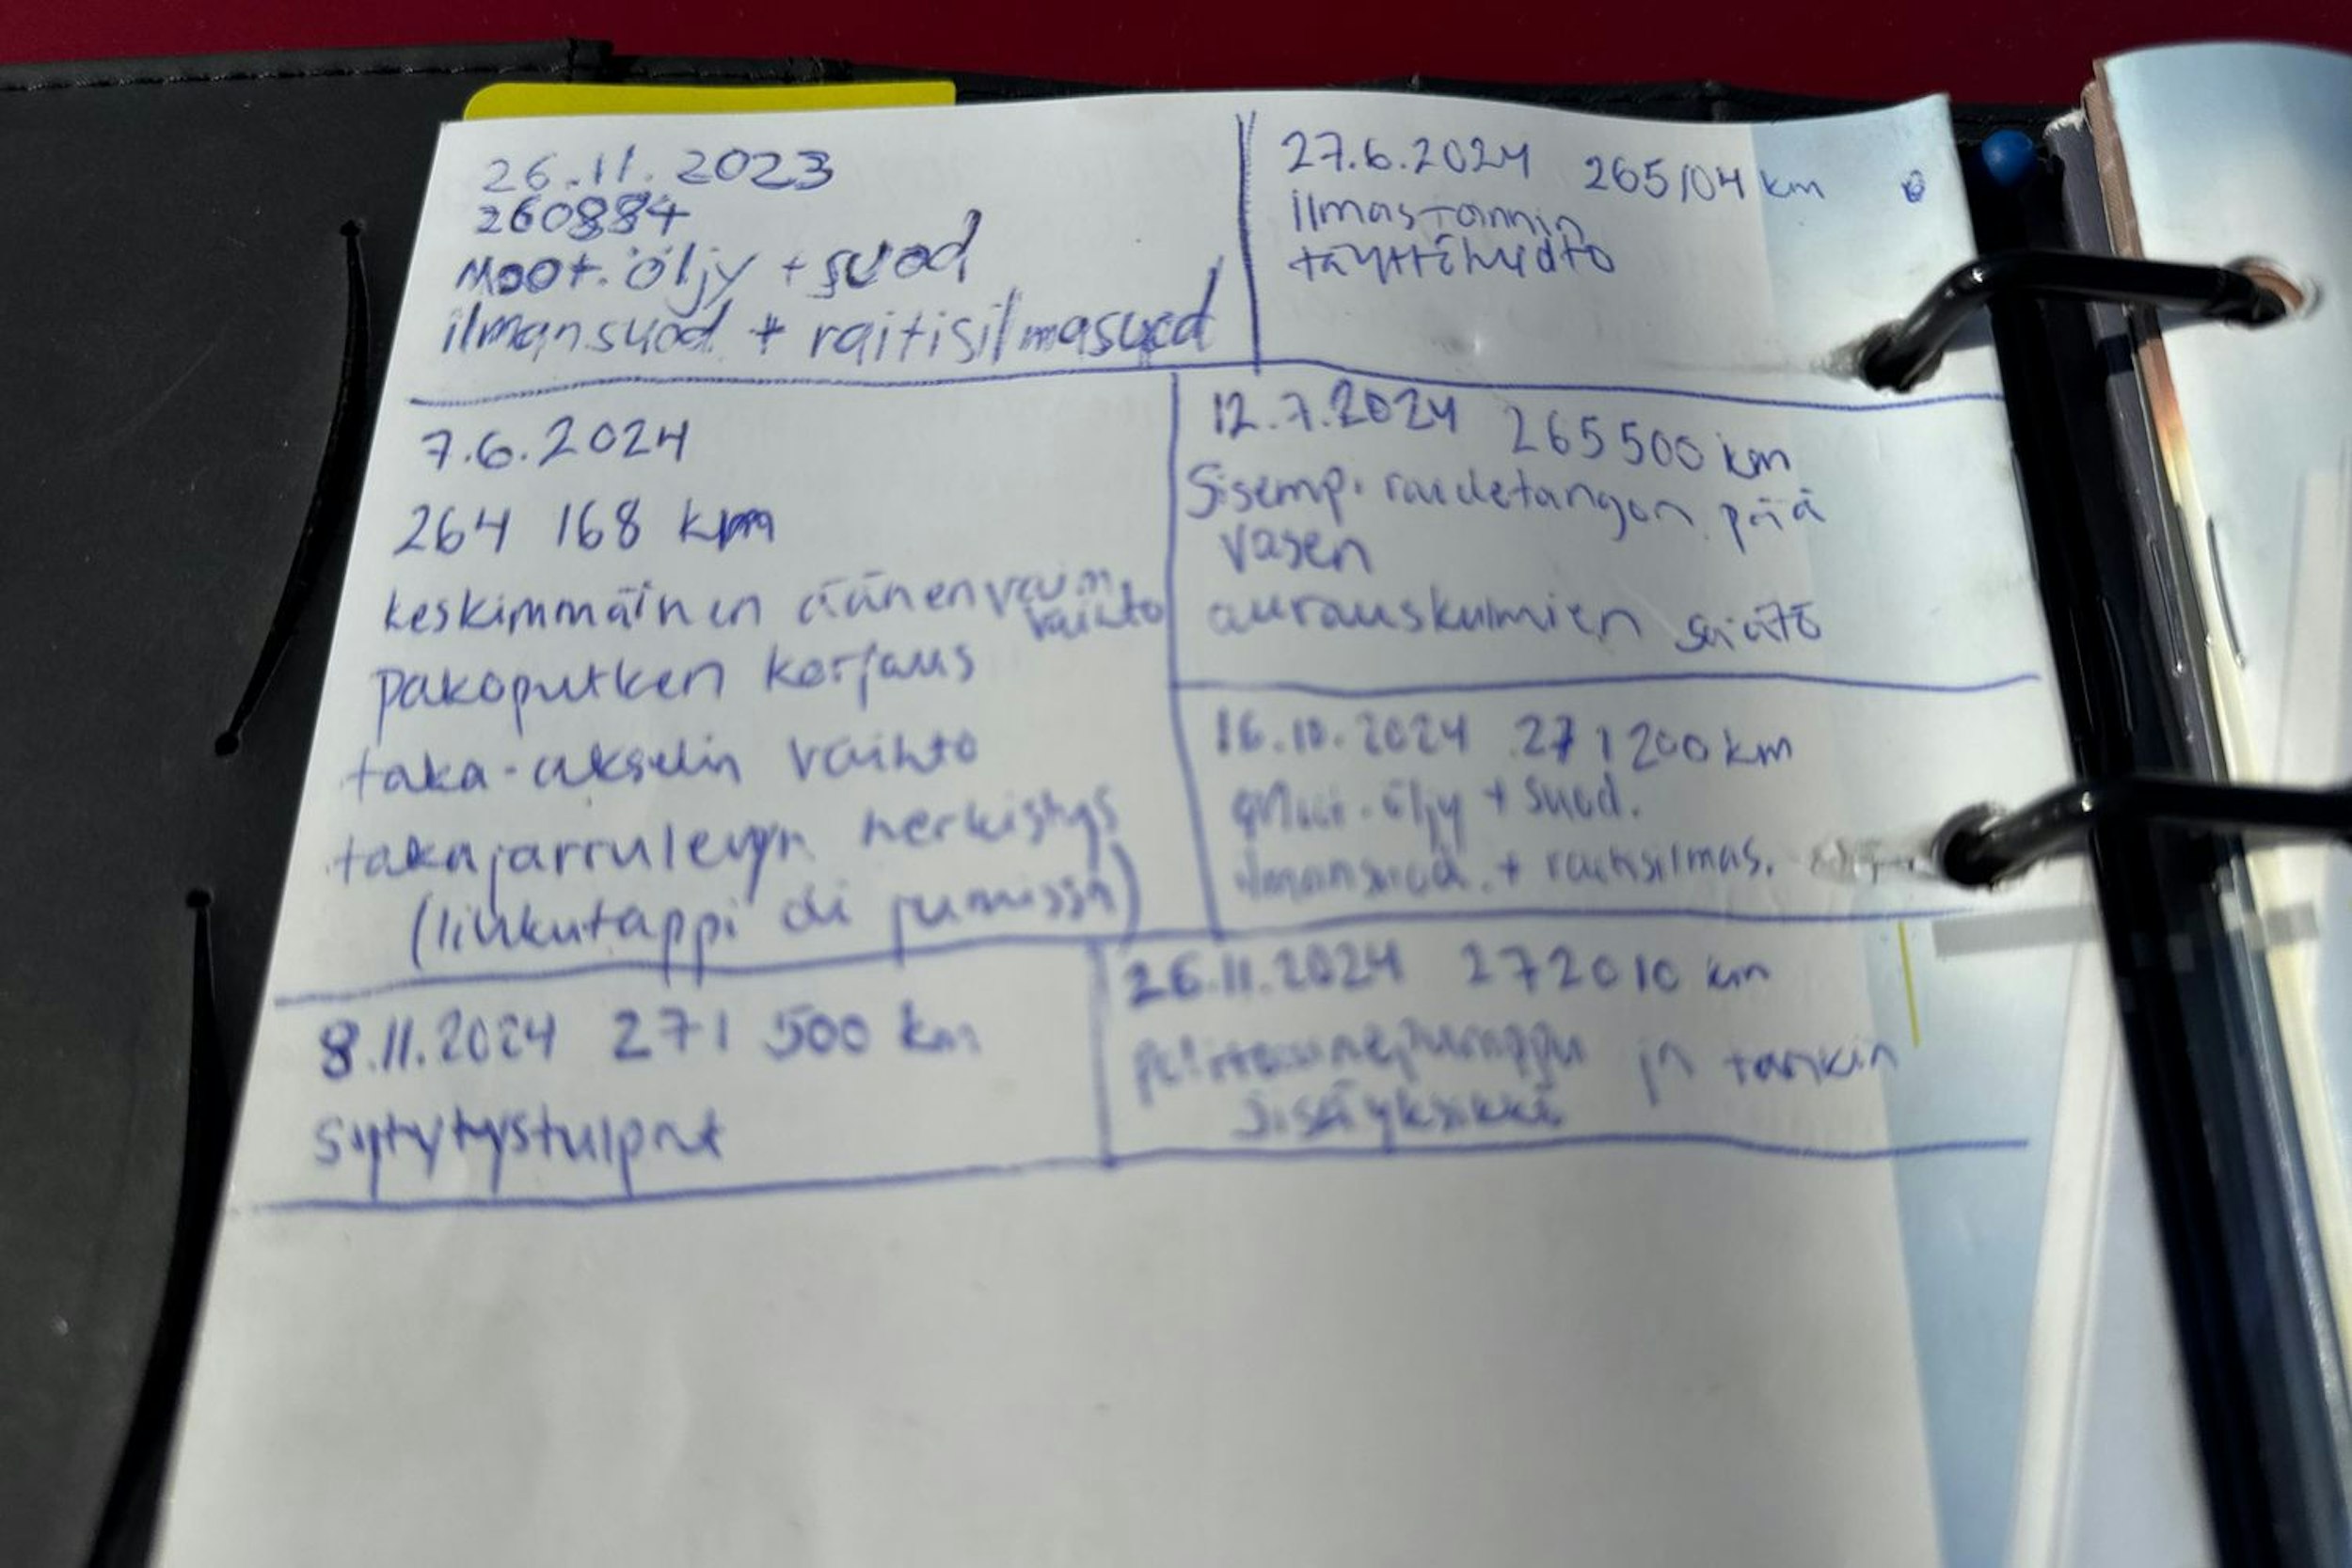 26.11.2023
260884
Moot. öljy + suod
ilmansuod + raitisilmasuod
27.6.2024 265104 km
ilmastonnin
täyttöhuolto
7.6.2024
264 168 km
keskimmäinen äänenvaim.
vaihto
pakoputken korjaus
taka-akselin vaihto
takajarrulevyn herkistys
(liukutappi oli jumissa)
12.7.2024 265 500 km
Sisemp. raidetangon pää
vasen
aurauskulmien säätö
16.10.2024 271 200 km
öljy + suod.
ilmansuod. + raitisilmas.
8.11.2024 271 500 km
Sytytystulpat
26.11.2024 272010 km
polttoainepumppu ja tankin
sisäyksikkö